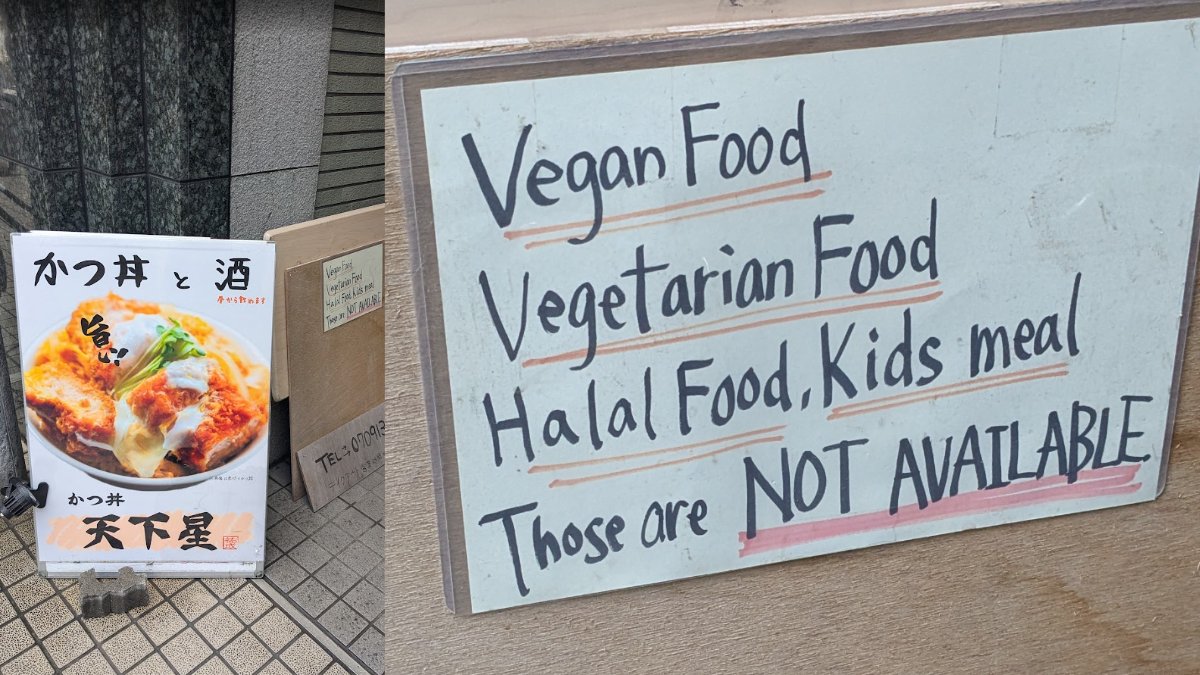 かつ丼と酒
昼から飲めます
旨い!!
かつ丼
天下星
Vegan Food
Vegetarian Food
Halal Food, Kids meal
Those are NOT AVAILABLE
TEL→070913
Vegan Food
Vegetarian Food
Halal Food, Kids meal
Those are NOT AVAILABLE